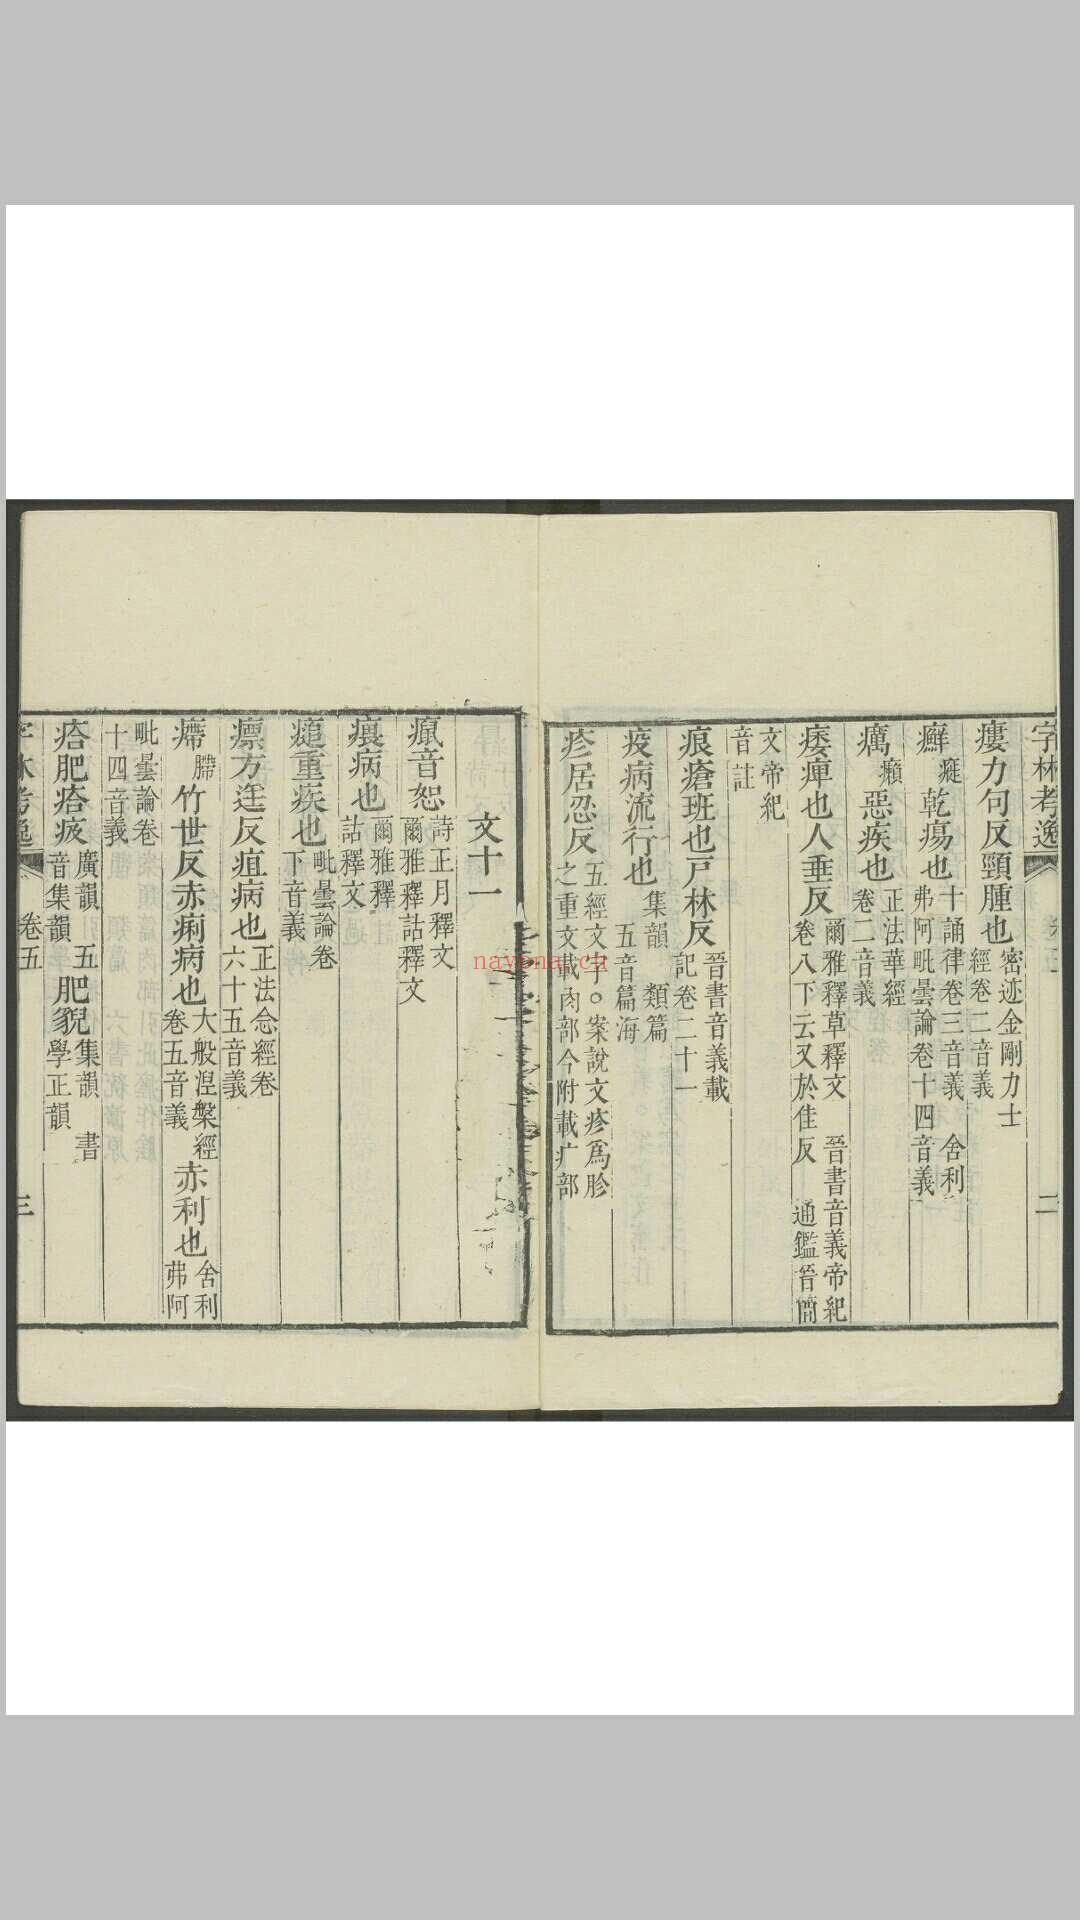 字林考逸 二
瘻力句反頸腫也密迹金剛力士經卷二音義
癬㿈乾瘍也十誦律卷三音義 舍利弗阿毗曇論卷十四音義
癘癩惡疾也正法華經卷二音義
痿痺也人垂反爾雅釋草釋文 晉書音義帝紀卷八下云又於隹反 通鑑晉簡
文帝紀音註
痕瘡瘢也戸林反晉書音義載記卷二十一
疫病流行也集韻 類篇 五音篇海
疹居忍反五經文字○案說文疹爲胗之重文載肉部今附載疒部
文十一
癙音恕詩正月釋文 爾雅釋詁釋文
瘣病也爾雅釋詁釋文
㿉重疾也毗曇論卷下音義
瘭方迋反疽病也正法念經卷六十五音義
㿃䐭竹世反赤痢病也大般涅槃經卷五音義赤利也舍利弗阿
毗曇論卷十四音義
㾑肥㾑疲廣韻 五音集韻肥㒵集韻 書學正韻
字林考逸 卷五 三
navona.cn